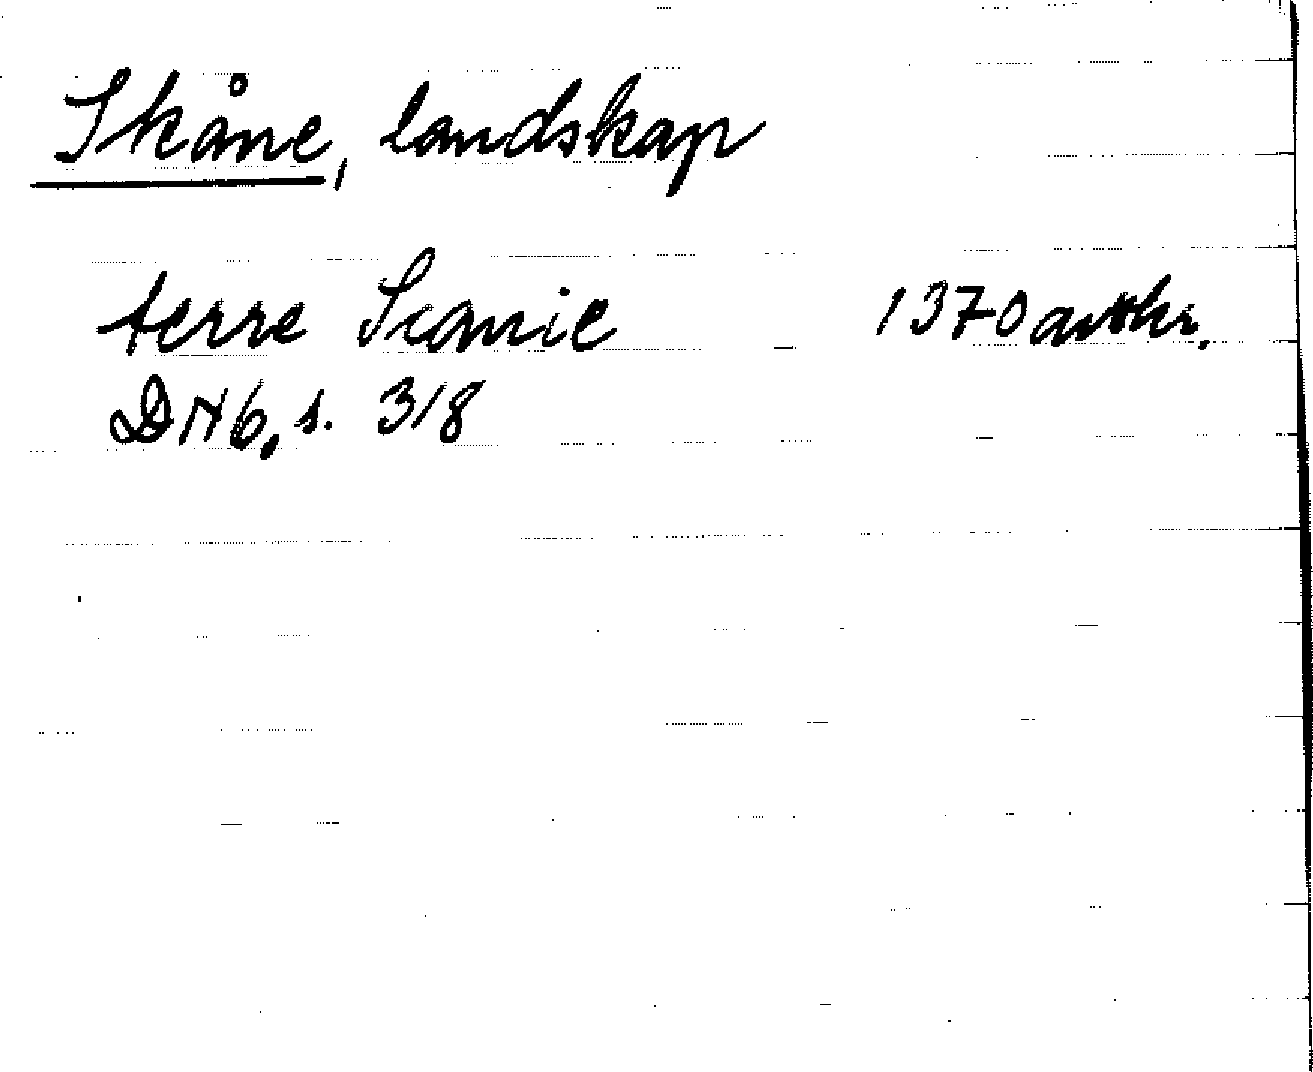 Skåne, landskap
terre Scanie 1370 avskr.
DN 6, s. 318